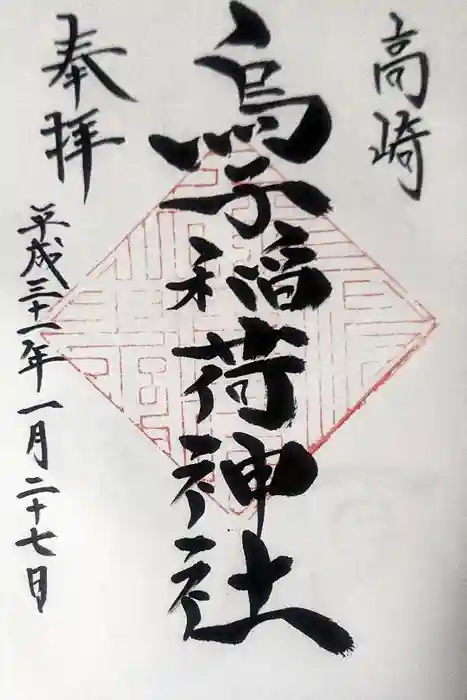 高崎
烏子稲荷神社
奉拝
平成三十一年一月二十七日